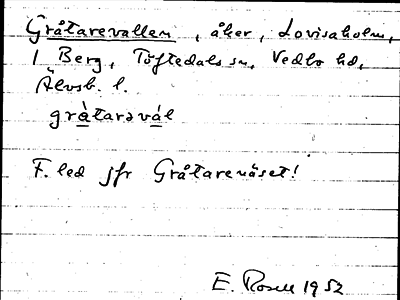 Gråtarevallen, åker, Lovisaholm,
1 Berg, Töftedals sn, Vedbo hd,
Älvsb. l.
grà̊tarəvál
F. led jfr Gråtarenäset!
E. Rosell 1952